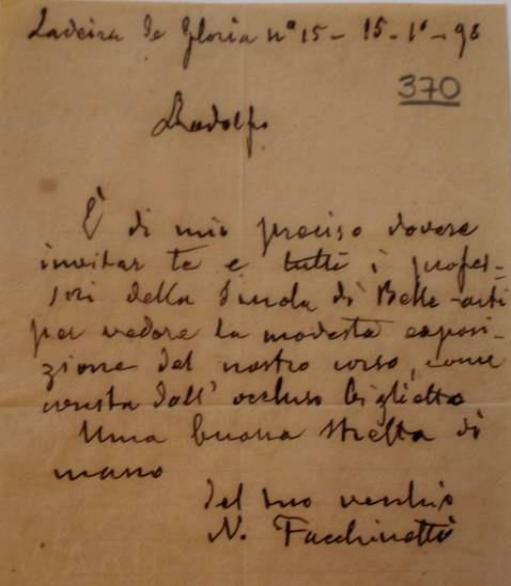 Ladeira da Gloria nº 15 - 15-1º-96
370
Rodolfo
È di mio preciso dovere
invitar te e tutti i profes-
sori della Scuola di Belle-arti
per vedere la modesta esposi-
zione del nostro corso, come
consta dall' accluso biglietto
Una buona stretta di
mano
del tuo vecchio
N. Facchinetti